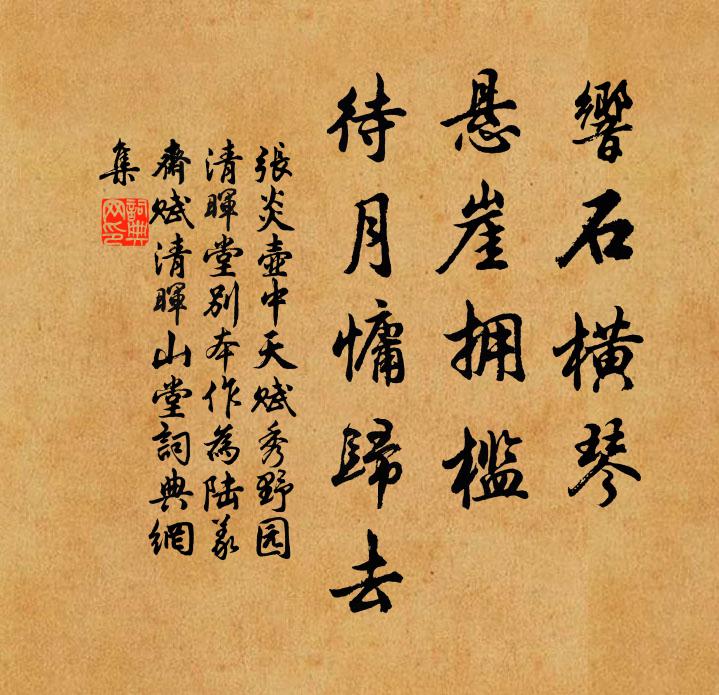 響石橫琴
悬崖拥檻
待月慵歸去
張炎壺中天賦秀野园
清暉堂別本作為陆義
齋賦清暉山堂詞典網
集
詞典
网印